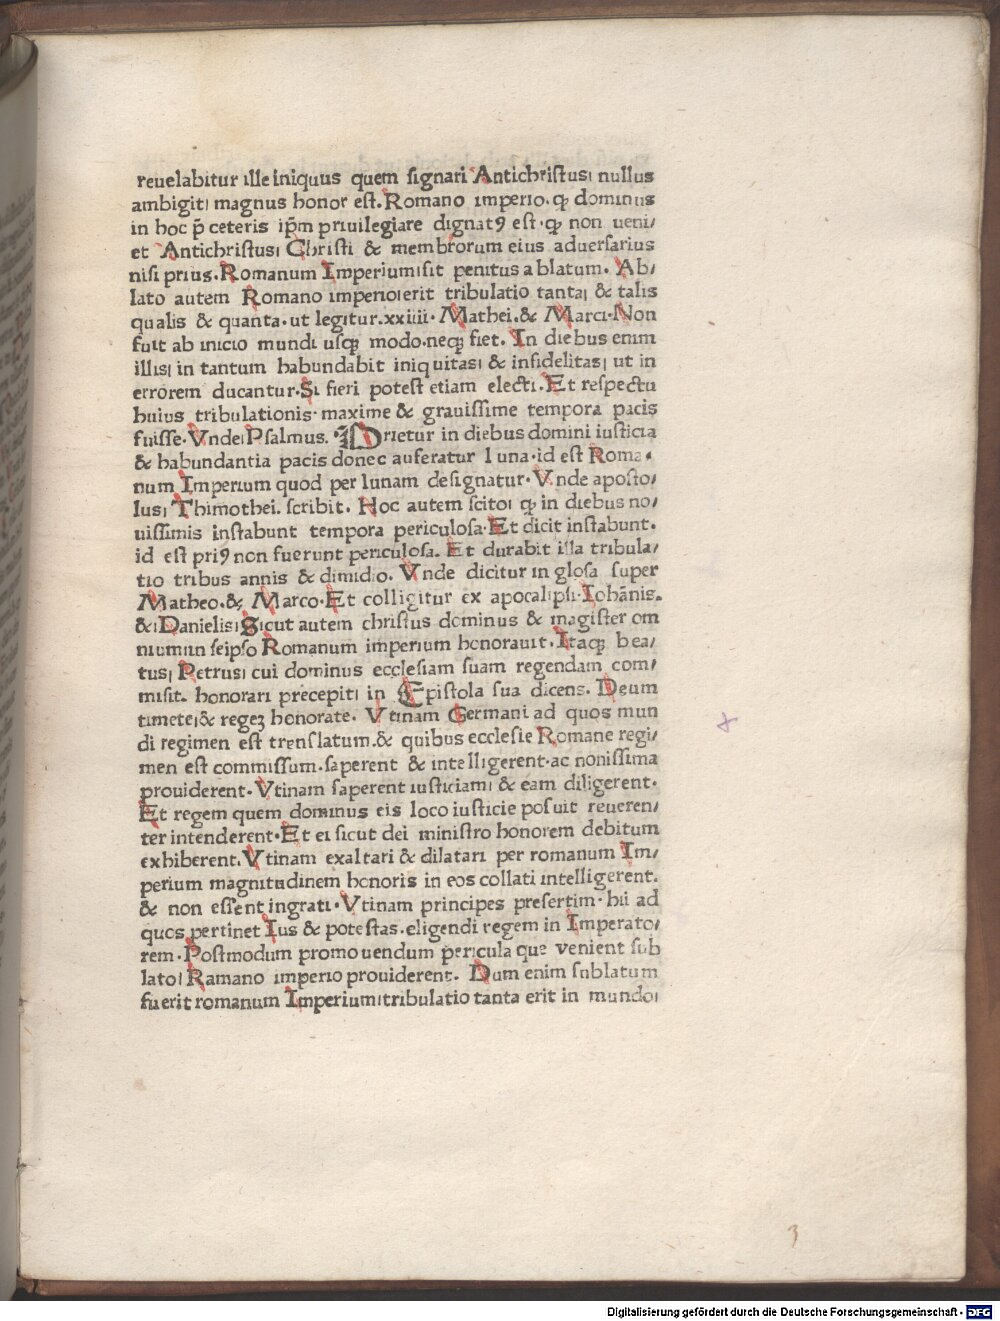 reuelabitur ille iniquus quem signari Antichristusı nullus
ambigitı magnus honor est. Romano imperio. ꝙ dominus
in hoc p̄ ceteris ip̄m priuilegiare dignatꝰ est · ꝙ non ueni/
et Antichristusı Christi & membrorum eius aduersarius
nisi prius. Romanum Imperiumı sit penitus ablatum. Ab/
lato autem Romano imperioı erit tribulatio tantaı & talis
qualis & quanta · ut legitur. xxiiii · Mathei. & Marci · Non
fuit ab inicio mundi usqꝫ modo. neqꝫ fiet. In diebus enim
illisı in tantum habundabit iniquitası & infidelitası ut in
errorem ducantur. Si fieri potest etiam electi. Et respectu
huius tribulationis · maxime & grauissime tempora pacis
fuisse. Vndeı Psalmus. Orietur in diebus domini iusticia
& habundantia pacis donec auferatur luna · id est Roma ·
num Imperium quod per lunam designatur · Vnde aposto/
lusı Thimothei. scribit. Hoc autem scitoı ꝙ in diebus no/
uissimis instabunt tempora periculosa · Et dicit instabunt.
id est priꝰ non fuerunt periculosa. Et durabit illa tribula/
tio tribus annis & dimidio. Vnde dicitur in glosa super
Matheo. & Marco · Et colligitur ex apocalipsi · Iohānis.
& ı Danielisı Sicut autem christus dominus & magister om
niumı in seipso Romanum imperium honorauit · Itaqꝫ bea/
tusı Petrusı cui dominus ecclesiam suam regendam com/
misit. honorari precepitı in Epistola sua dicens. Deum
timeteı & regeꝫ honorate. Vtinam Germani ad quos mun
di regimen est trenslatum. & quibus ecclesie Romane regi/
men est commissum. saperent & intelligerent · ac nonissima
prouiderent. Vtinam saperent iusticiamı & eam diligerent.
Et regem quem dominus eis loco iusticie posuit reueren/
ter intenderent · Et ei sicut dei ministro honorem debitum
exhiberent. Vtinam exaltari & dilatari per romanum Im/
perium magnitudinem honoris in eos collati intelligerent.
& non essent ingrati · Vtinam principes presertim · hii ad
quos pertinet Ius & potestas. eligendi regem in Imperato/
rem · Postmodum promouendum pericula que venient sub
latoı Ramano imperio prouiderent. Dum enim sublatum
fuerit romanum Imperiumı tribulatio tanta erit in mundoı
3
Digitalisierung gefördert durch die Deutsche Forschungsgemeinschaft - DFG